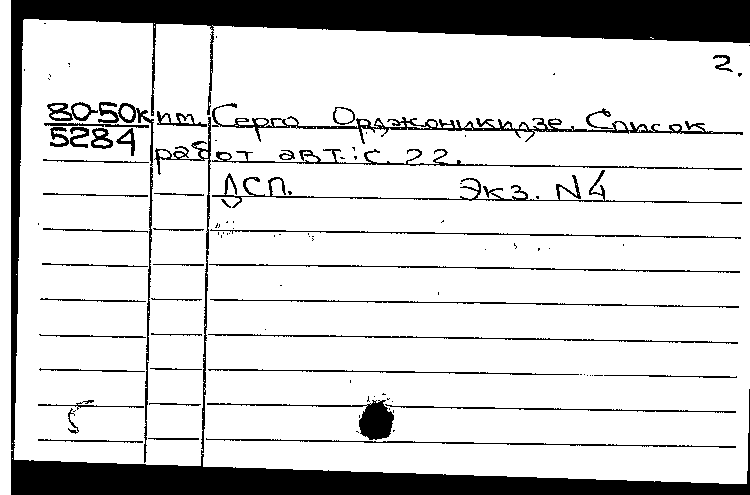 2.
80-50к пт. Серго Орджоникидзе. Список
5284 работ авт.: с. 22.
ДСП. Экз. N4